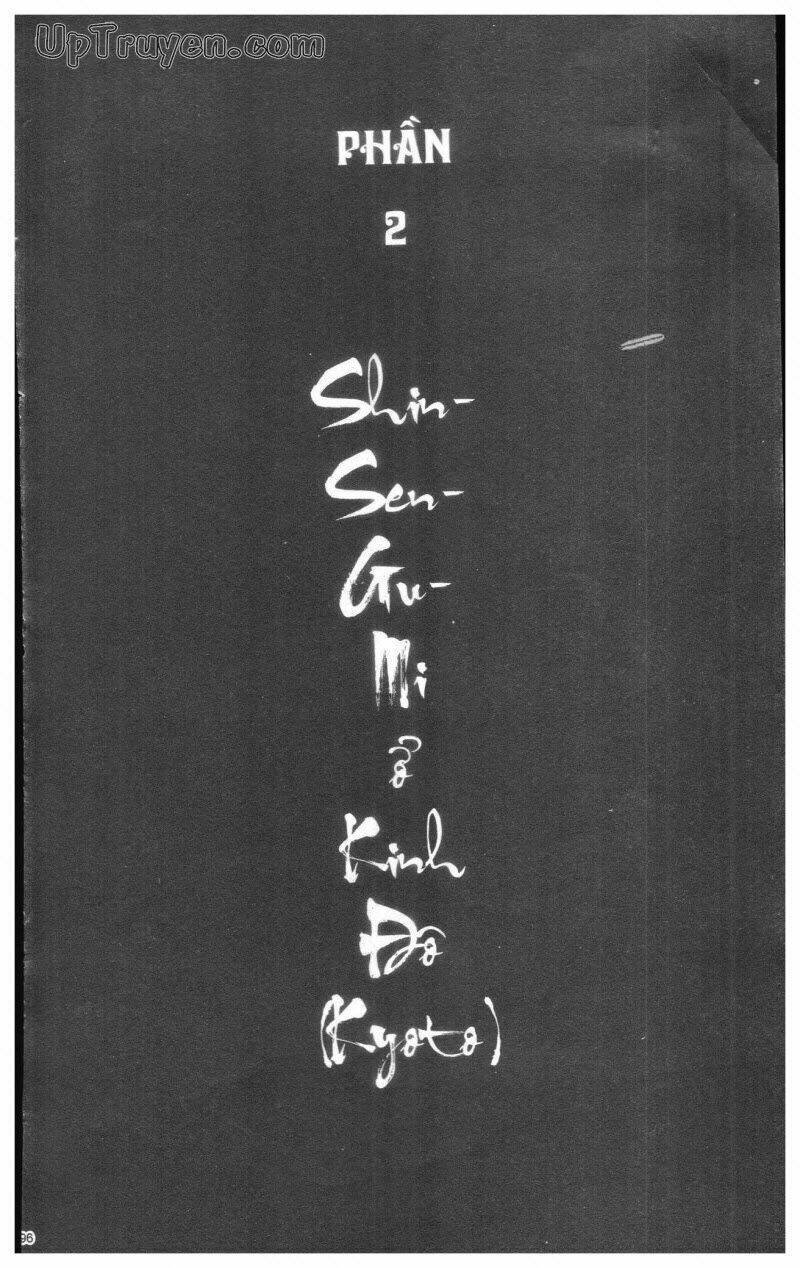 UpTruyen.com
PHẦN
2
Shin-
Sen-
Gu-
Mi
ở
Kinh
Đô
(Kyoto)
96